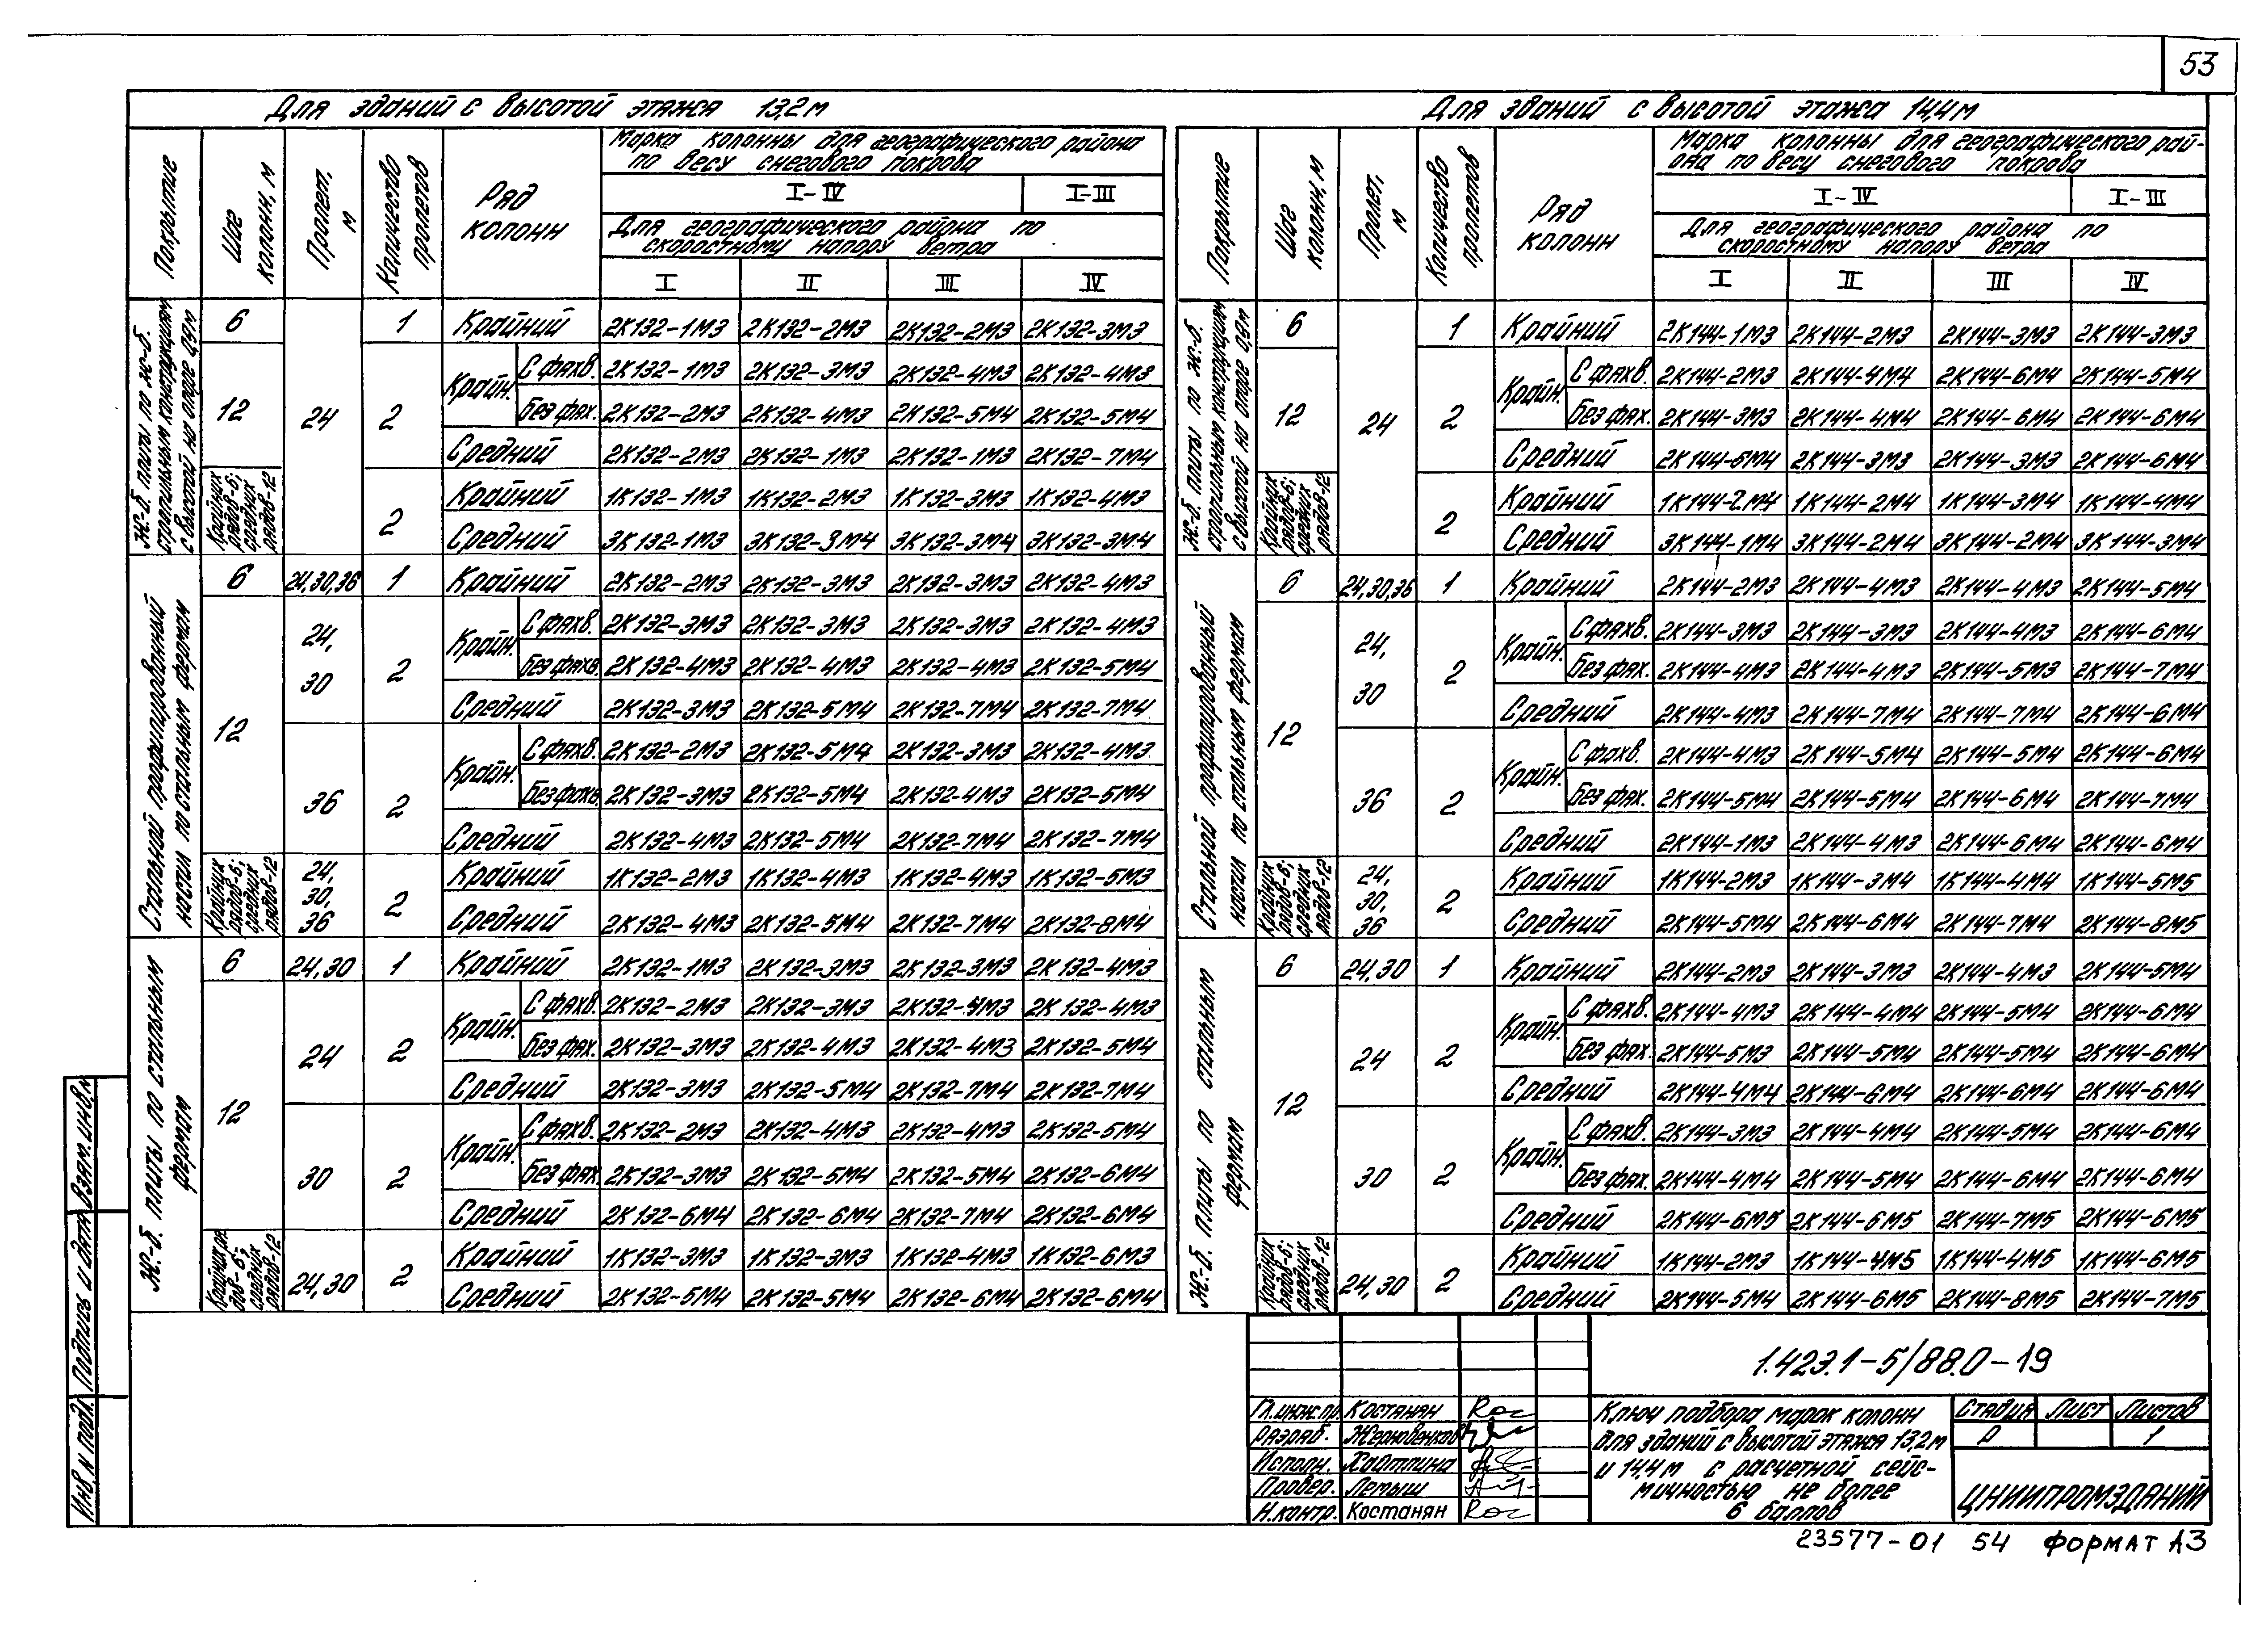 53
Для зданий с высотой этажа 13,2м
Покрытие
Шаг колонн, м
Пролет, м
Количество пролетов
Ряд колонн
Марка колонны для географического района
по весу снегового покрова
I-IV I-III
Для географического района по
скоростному напору ветра
I II III IV
Ж.-б. плиты по ж.-б. стропильным конструкциям с высотой на опоре 0,9м
6 1 Крайний 2К132-1М3 2К132-2М3 2К132-2М3 2К132-3М3
12 24 2 Крайн. С фахв. 2К132-1М3 2К132-3М3 2К132-4М3 2К132-4М3
Без фах. 2К132-2М3 2К132-4М3 2К132-5М4 2К132-5М4
Средний 2К132-2М3 2К132-1М3 2К132-1М3 2К132-7М4
Крайних рядов-6; средних рядов-12
2 Крайний 1К132-1М3 1К132-2М3 1К132-3М3 1К132-4М3
Средний 3К132-1М3 3К132-3М4 3К132-3М4 3К132-3М4
Стальной профилированный настил по стальным фермам
6 24,30,36 1 Крайний 2К132-2М3 2К132-3М3 2К132-3М3 2К132-4М3
12 24, 30 2 Крайн. С фахв. 2К132-3М3 2К132-3М3 2К132-3М3 2К132-4М3
Без фахв. 2К132-4М3 2К132-4М3 2К132-4М3 2К132-5М4
Средний 2К132-3М3 2К132-5М4 2К132-7М4 2К132-7М4
36 2 Крайн. С фахв. 2К132-2М3 2К132-5М4 2К132-3М3 2К132-4М3
Без фахв. 2К132-3М3 2К132-5М4 2К132-4М3 2К132-5М4
Средний 2К132-4М3 2К132-5М4 2К132-7М4 2К132-7М4
Крайних рядов-6; средних рядов-12
24, 30, 36 2 Крайний 1К132-2М3 1К132-4М3 1К132-4М3 1К132-5М3
Средний 2К132-4М3 2К132-5М4 2К132-7М4 2К132-8М4
Ж.-б. плиты по стальным фермам
6 24,30 1 Крайний 2К132-1М3 2К132-3М3 2К132-3М3 2К132-4М3
12 24 2 Крайн. С фахв. 2К132-2М3 2К132-3М3 2К132-4М3 2К132-4М3
Без фах. 2К132-3М3 2К132-4М3 2К132-4М3 2К132-5М4
Средний 2К132-3М3 2К132-5М4 2К132-7М4 2К132-7М4
30 2 Крайн. С фахв. 2К132-2М3 2К132-4М3 2К132-4М3 2К132-5М4
Без фах. 2К132-3М3 2К132-5М4 2К132-5М4 2К132-6М4
Средний 2К132-6М4 2К132-6М4 2К132-7М4 2К132-6М4
Крайних рядов-6; средних рядов-12
24,30 2 Крайний 1К132-3М3 1К132-3М3 1К132-4М3 1К132-6М3
Средний 2К132-5М4 2К132-5М4 2К132-6М4 2К132-6М4
Для зданий с высотой этажа 14,4м
Покрытие
Шаг колонн, м
Пролет, м
Количество пролетов
Ряд колонн
Марка колонны для географического рай-
она по весу снегового покрова
I-IV I-III
Для географического района по
скоростному напору ветра
I II III IV
Ж.-б. плиты по ж.-б. стропильным конструкциям с высотой на опоре 0,9м
6 1 Крайний 2К144-1М3 2К144-2М3 2К144-3М3 2К144-3М3
12 24 2 Крайн. С фахв. 2К144-2М3 2К144-4М4 2К144-6М4 2К144-5М4
Без фах. 2К144-3М3 2К144-4М4 2К144-6М4 2К144-6М4
Средний 2К144-6М4 2К144-3М3 2К144-3М3 2К144-6М4
Крайних рядов-6; средних рядов-12
2 Крайний 1К144-2М4 1К144-2М4 1К144-3М4 1К144-4М4
Средний 3К144-1М4 3К144-2М4 3К144-2М4 3К144-3М4
Стальной профилированный настил по стальным фермам
6 24,30,36 1 Крайний 2К144-2М3 2К144-4М3 2К144-4М3 2К144-5М4
12 24, 30 2 Крайн. С фахв. 2К144-3М3 2К144-3М3 2К144-4М3 2К144-6М4
Без фах. 2К144-4М3 2К144-4М3 2К144-5М3 2К144-7М4
Средний 2К144-4М3 2К144-7М4 2К144-7М4 2К144-6М4
36 2 Крайн. С фахв. 2К144-4М3 2К144-5М4 2К144-5М4 2К144-6М4
Без фах. 2К144-5М4 2К144-5М4 2К144-6М4 2К144-7М4
Средний 2К144-1М3 2К144-4М3 2К144-6М4 2К144-6М4
Крайних рядов-6; средних рядов-12
24, 30, 36 2 Крайний 1К144-2М3 1К144-3М4 1К144-4М4 1К144-5М5
Средний 2К144-5М4 2К144-6М4 2К144-7М4 2К144-8М5
Ж.-б. плиты по стальным фермам
6 24,30 1 Крайний 2К144-2М3 2К144-3М3 2К144-4М3 2К144-5М4
12 24 2 Крайн. С фахв. 2К144-4М3 2К144-4М4 2К144-5М4 2К144-6М4
Без фах. 2К144-5М3 2К144-5М4 2К144-5М4 2К144-6М4
Средний 2К144-4М4 2К144-6М4 2К144-6М4 2К144-6М4
30 2 Крайн. С фахв. 2К144-3М3 2К144-4М4 2К144-5М4 2К144-6М4
Без фах. 2К144-4М4 2К144-5М4 2К144-6М4 2К144-6М4
Средний 2К144-6М5 2К144-6М5 2К144-7М5 2К144-6М5
Крайних рядов-6; средних рядов-12
24,30 2 Крайний 1К144-2М3 1К144-4М5 1К144-4М5 1К144-6М5
Средний 2К144-5М4 2К144-6М5 2К144-8М5 2К144-7М5
Взам. инв. №
Подпись и дата
Инв. № подл.
1.423.1-5/88.0-19
Гл. инж. пр. Костанян
Разраб. Жерновенков
Исполн. Хайтлина
Провер. Лемыш
Н. контр. Костанян
Ключ подбора марок колонн
для зданий с высотой этажа 13,2м
и 14,4м с расчетной сейс-
мичностью не более
6 баллов
Стадия Лист Листов
Р 1
ЦНИИПРОМЗДАНИЙ
23577-01 54 Формат А3